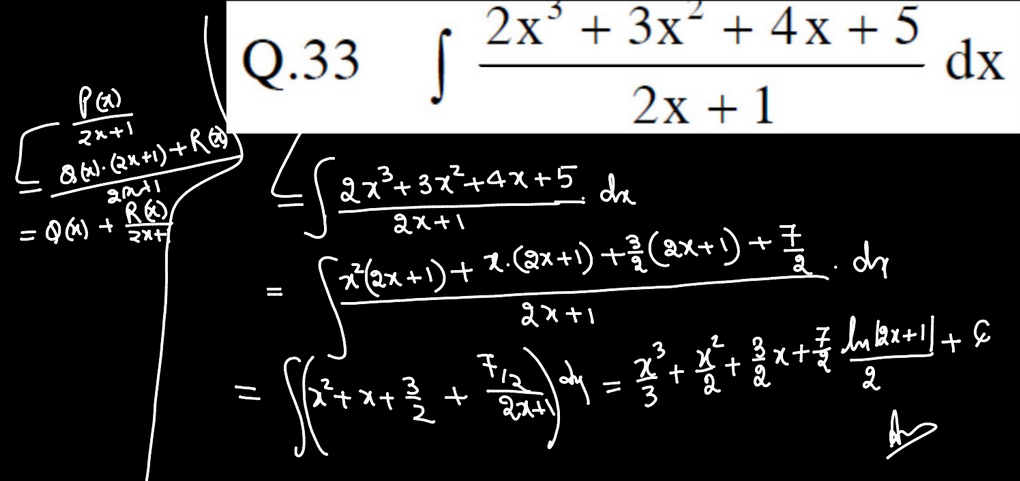 Q.33 ∫ (2x³ + 3x² + 4x + 5)/(2x + 1) dx
P(x)/(2x+1)
= (Q(x)·(2x+1) + R(x))/(2x+1)
= Q(x) + R(x)/(2x+
= ∫ (2x³+3x²+4x+5)/(2x+1) . dx
= ∫ (x²(2x+1) + x·(2x+1) + 3/2(2x+1) + 7/2)/(2x+1) . dx
= ∫(x²+x+3/2 + (7/2)/(2x+1))dx = x³/3 + x²/2 + 3/2 x + 7/2 ln|2x+1|/2 + C
Ans